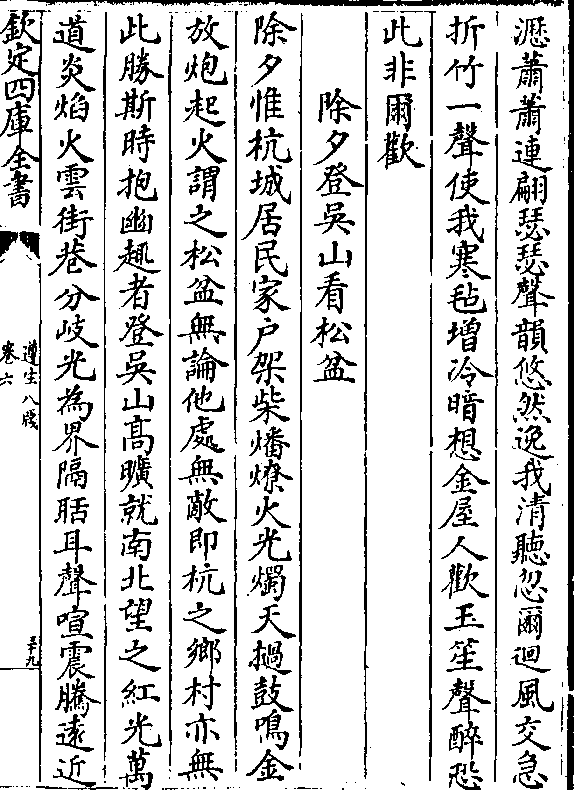 瀝蕭蕭連翩瑟瑟聲韻悠然逸我清聽忽爾迴風交急
折竹一聲使我寒毡增冷暗想金屋人歡玉笙聲醉恐
此非爾歡
除夕登吳山看松盆
除夕惟杭城居民家户架柴燔燎火光燭天撾鼓鳴金
放炮起火謂之松盆無論他處無敵即杭之鄉村亦無
此勝斯時抱幽趣者登吳山高曠就南北望之紅光萬
道炎焰火雲街巷分岐光為界隔聒耳聲喧震騰遠近
欽定四庫全書
遵生八牋
卷六
五十九